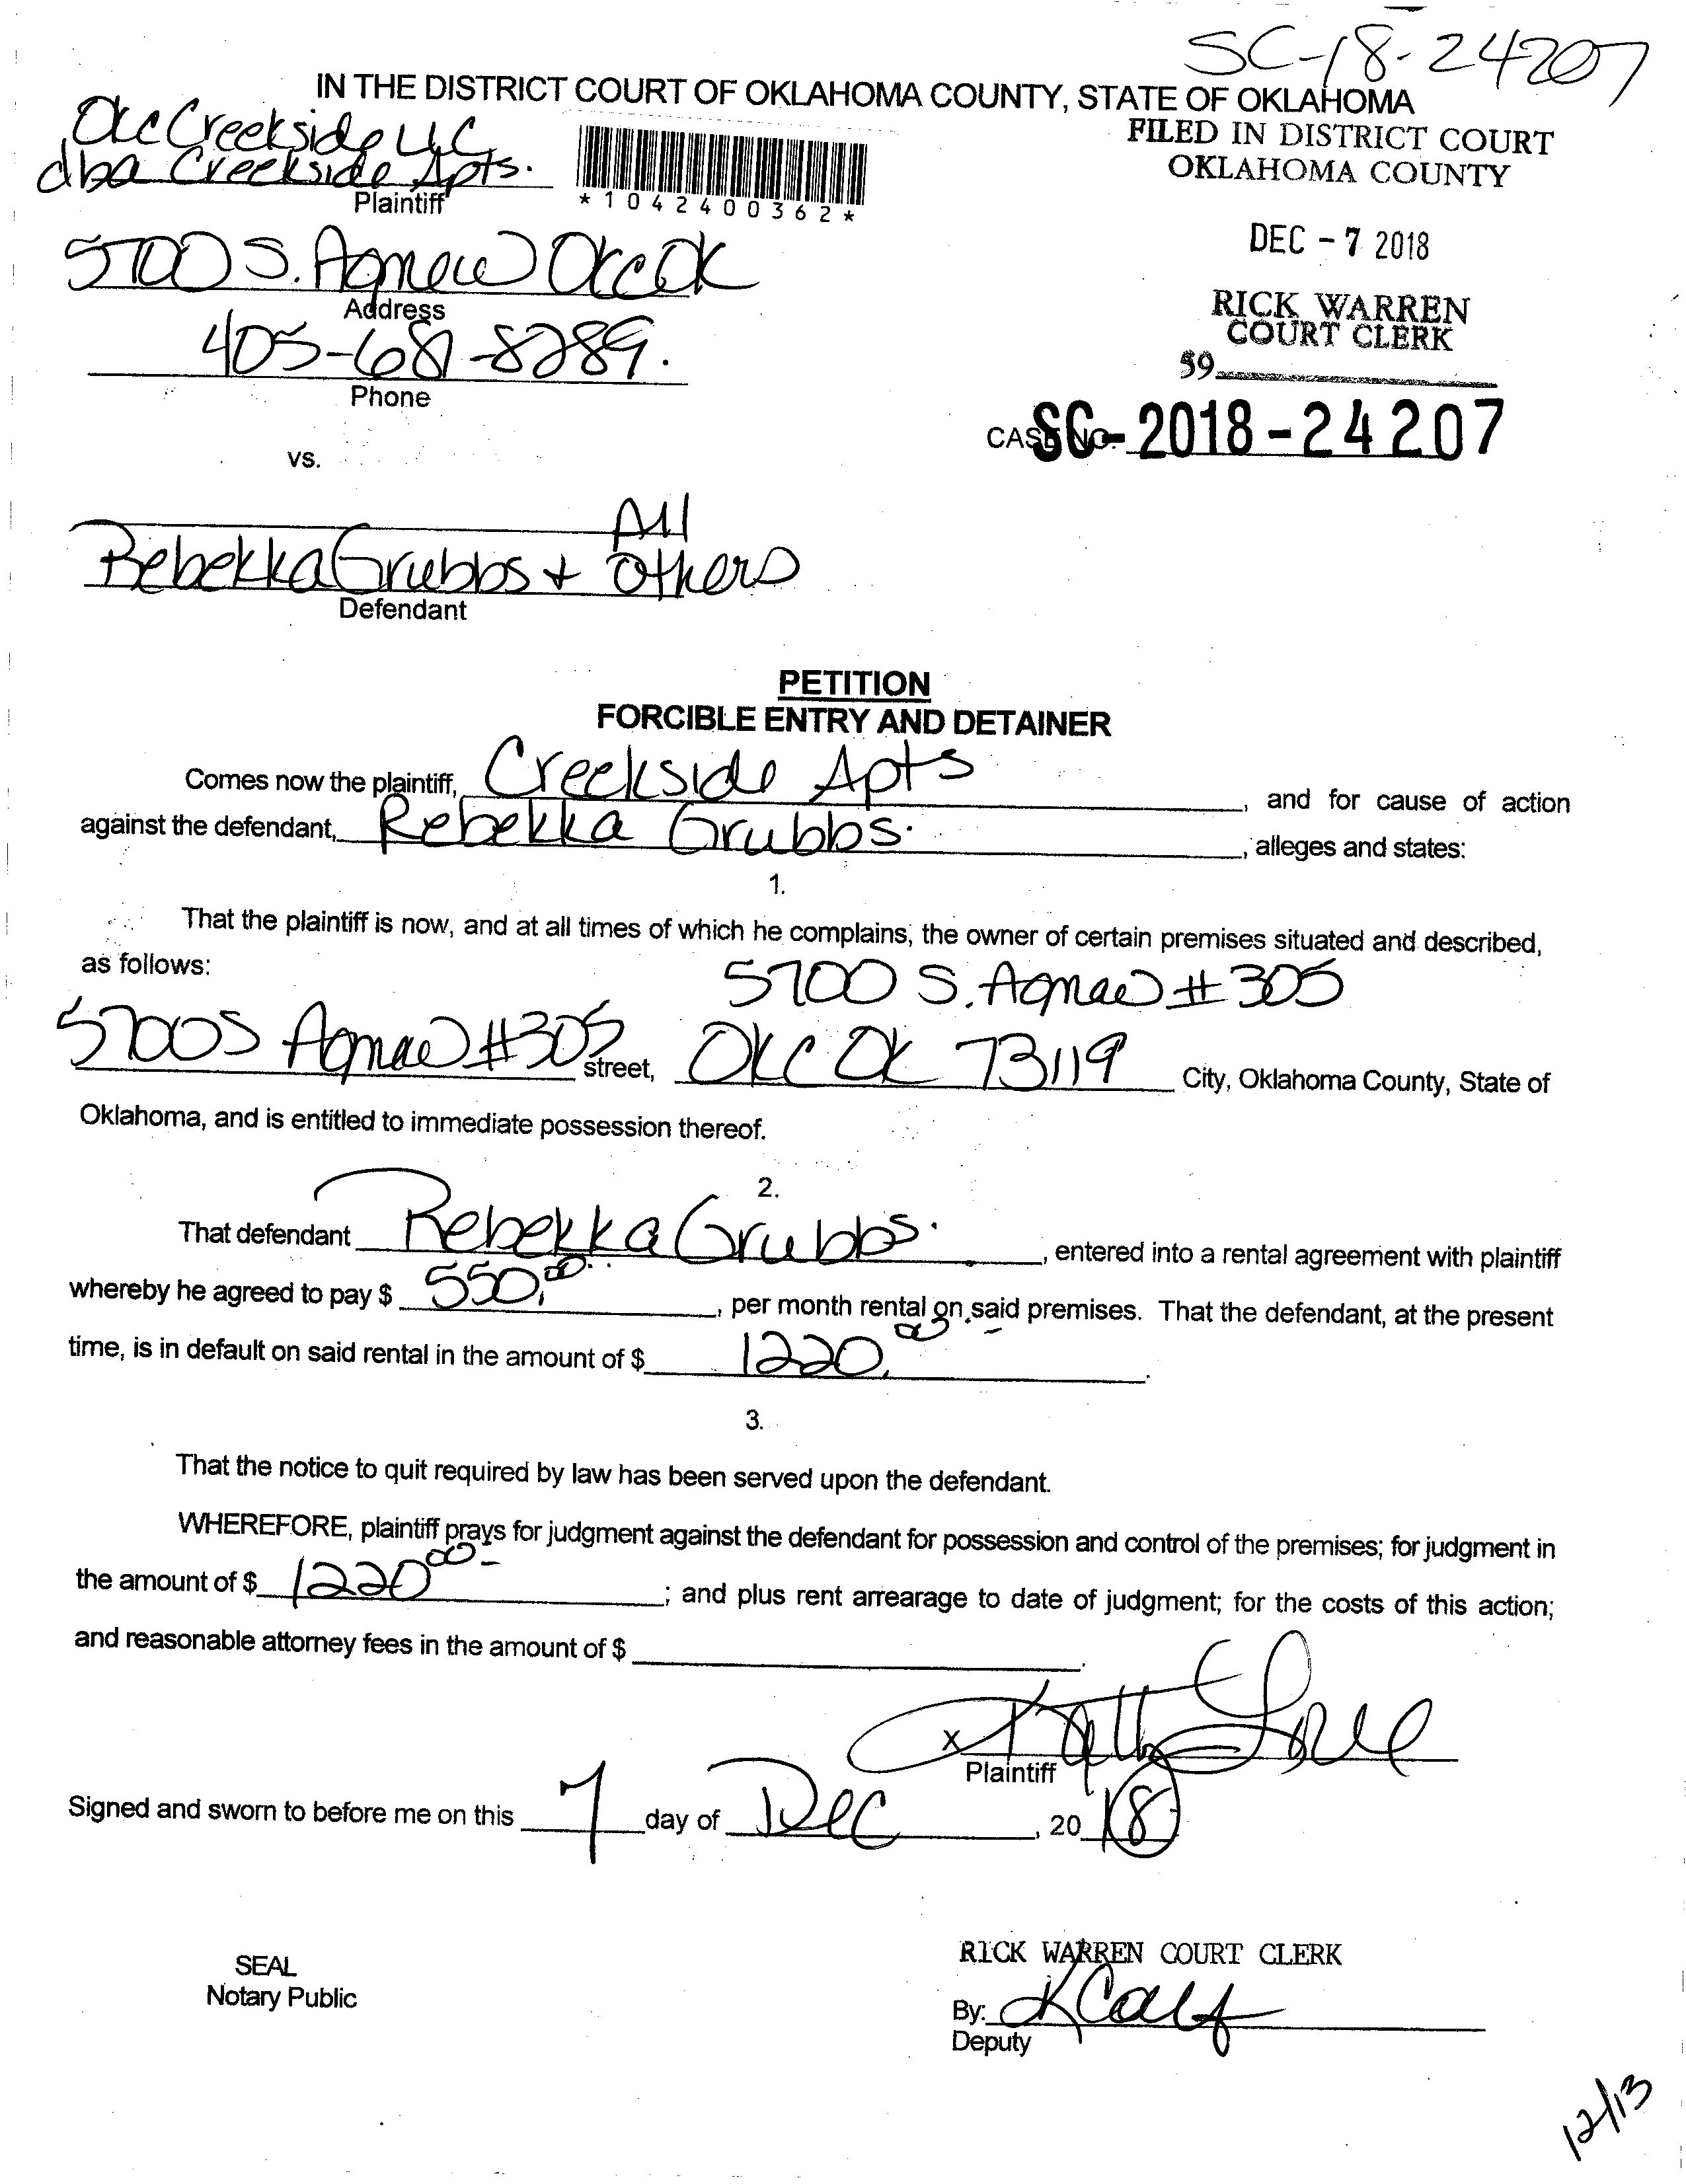 SC-18-24207
IN THE DISTRICT COURT OF OKLAHOMA COUNTY, STATE OF OKLAHOMA
OKC Creekside LLC
dba Creekside Apts.
Plaintiff
*1042400362*
FILED IN DISTRICT COURT
OKLAHOMA COUNTY
DEC - 7 2018
RICK WARREN
COURT CLERK
59
5700 S. Agnew OKC OK
Address
405-681-8289.
Phone
CASE NO. SC-2018-24207
vs.
Rebekka Grubbs + All Others
Defendant
PETITION
FORCIBLE ENTRY AND DETAINER
Comes now the plaintiff, Creekside Apts, and for cause of action
against the defendant, Rebekka Grubbs., alleges and states:
1.
That the plaintiff is now, and at all times of which he complains, the owner of certain premises situated and described,
as follows:
5700 S. Agnew #305
5700 S Agnew #305 street, OKC OK 73119 City, Oklahoma County, State of
Oklahoma, and is entitled to immediate possession thereof.
2.
That defendant Rebekka Grubbs., entered into a rental agreement with plaintiff
whereby he agreed to pay $ 550.00, per month rental on said premises. That the defendant, at the present
time, is in default on said rental in the amount of $ 1220.00.
3.
That the notice to quit required by law has been served upon the defendant.
WHEREFORE, plaintiff prays for judgment against the defendant for possession and control of the premises; for judgment in
the amount of $ 1220 00-; and plus rent arrearage to date of judgment; for the costs of this action;
and reasonable attorney fees in the amount of $
X
Plaintiff
Signed and sworn to before me on this 7 day of Dec, 2018
SEAL
Notary Public
RICK WARREN COURT CLERK
By:
Deputy
12/13